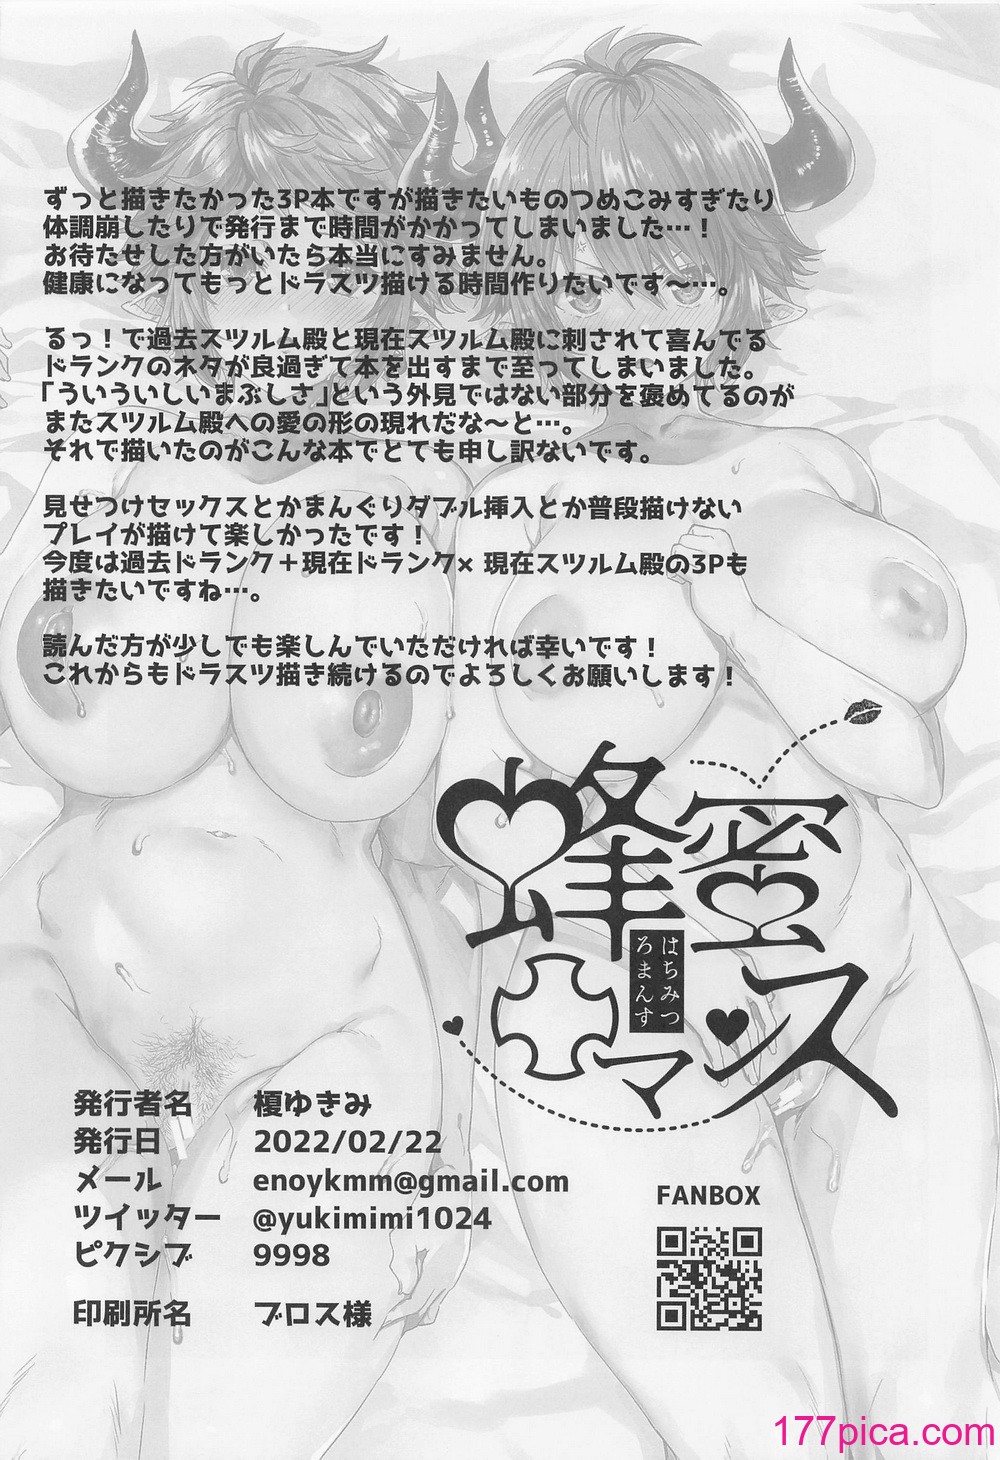 ずっと描きたかった3P本ですが描きたいものつめこみすぎたり
体調崩したりで発行まで時間がかかってしまいました…！
お待たせした方がいたら本当にすみません。
健康になってもっとドラスツ描ける時間作りたいです～…。
るっ！で過去スツルム殿と現在スツルム殿に刺されて喜んでる
ドランクのネタが良過ぎて本を出すまで至ってしまいました。
「ういういしいまぶしさ」という外見ではない部分を褒めてるのが
またスツルム殿への愛の形の現れだな～と…。
それで描いたのがこんな本でとても申し訳ないです。
見せつけセックスとかまんぐりダブル挿入とか普段描けない
プレイが描けて楽しかったです！
今度は過去ドランク＋現在ドランク× 現在スツルム殿の3Pも
描きたいですね…。
読んだ方が少しでも楽しんでいただければ幸いです！
これからもドラスツ描き続けるのでよろしくお願いします！
蜂蜜
はちみつ
ろまんす
ロマンス
発行者名 榎ゆきみ
発行日 2022/02/22
メール enoykmm@gmail.com
ツイッター @yukimimi1024
ピクシブ 9998
印刷所名 ブロス様
FANBOX
177pica.com